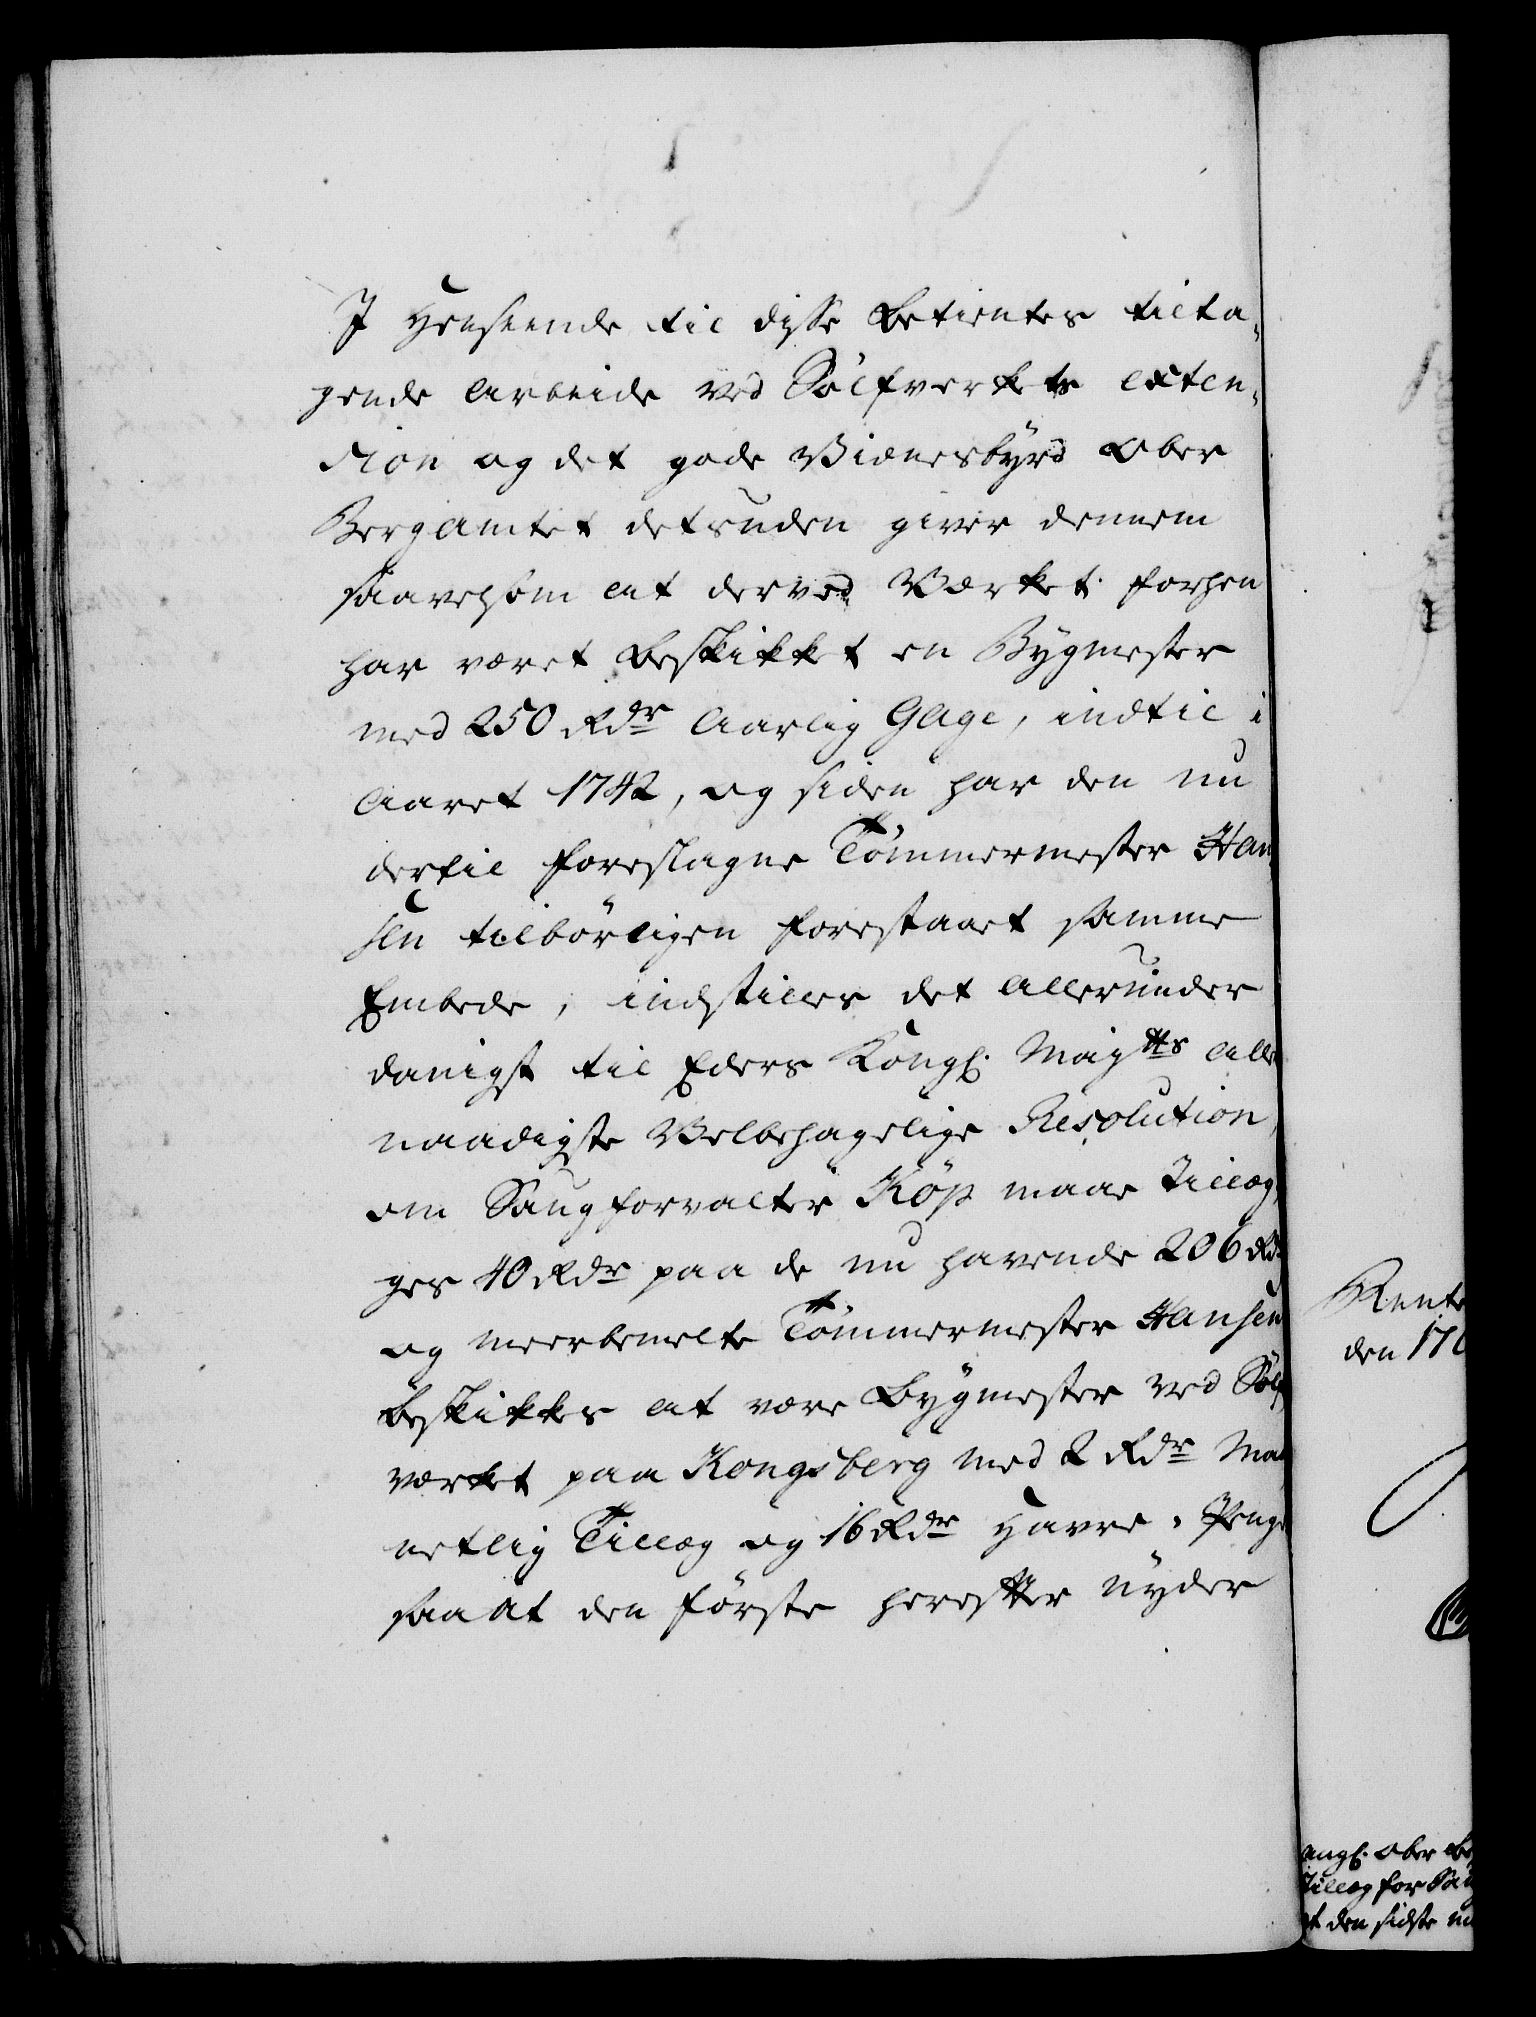 I Henseende til disse Betientes tilta-
gende Arbeide ved Sølfverkets exten-
sion og det gode Vidnesbyrd Ober
Bergamtet desuden giver dennem
saavelsom at der ved Værket forhen
har været beskikket en Bygmester
med 250 Rdr Aarlig Gage, indtil i
Aaret 1742, og siden har den nu
dertil foreslagne Tømmermester Han-
sen tilbørligen forestaaet samme
Embede, indstilles det allerunder
danigst til Eders Kongl. Majtts aller
naadigste Velbehagelige Resolution,
om Saugforvalter Köp maae Tillæg-
ges 40 Rdr paa de nu havende 206 Rdr
og meerbemelte Tømmermester Hansen
beskikkes at være Bygmester ved Sølf
værket paa Kongsberg med 2 Rdr Maa
netlig Tillæg og 16 Rdr Havre-Penge
saa at den første herefter nyder
Rente
den 176
ongl. Ober Be
Tillæg for Sau
at den sidste nu